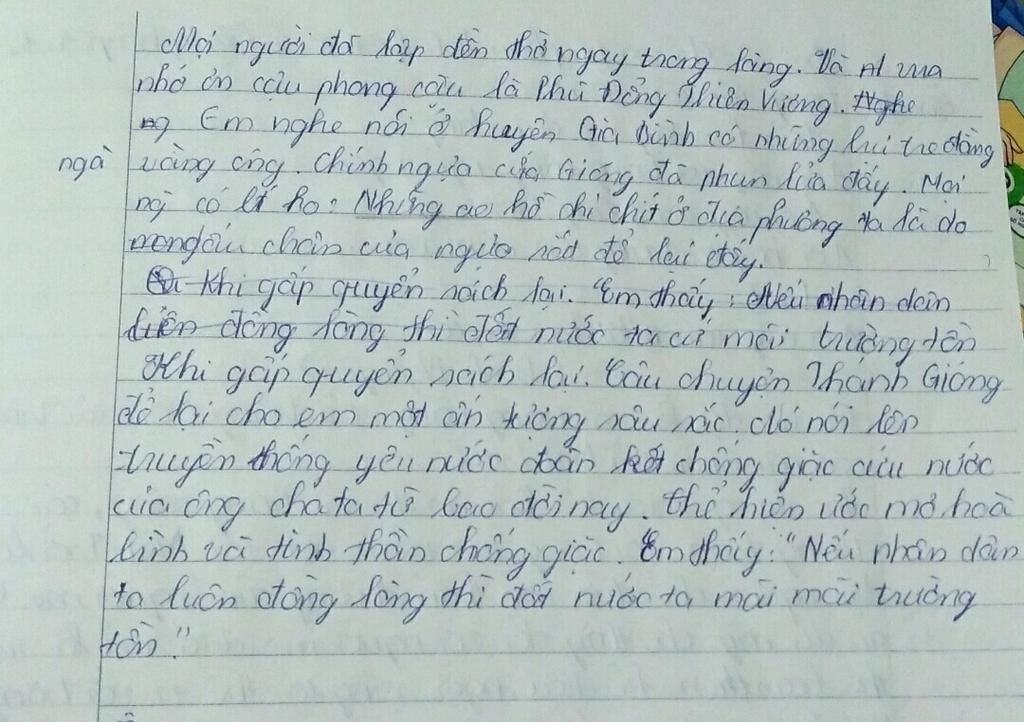 Mọi người đã lập đền thờ ngay trong làng. Và vua
nhớ ơn cậu phong cậu là Phù Đổng Thiên Vương. Nghe
Em nghe nói ở huyện Gia Bình có những bụi tre đằng
ngà vàng óng. Chính ngựa của Gióng đã phun lửa đấy. Mọi
có lẽ họ: Những ao hồ chi chít ở địa phương ta là do
dấu chân của ngựa sắt để lại đấy.
Khi gấp quyển sách lại. Em thấy: Nếu nhân dân
đồng lòng thì đất nước ta cứ mãi trường tồn
Khi gấp quyển sách lại. Câu chuyện Thánh Gióng
để lại cho em một ấn tượng sâu sắc. đó nói lên
truyền thống yêu nước đoàn kết chống giặc cứu nước
của ông cha ta từ bao đời nay. thể hiện ước mơ hoà
bình và tinh thần chống giặc. Em thấy: "Nếu nhân dân
ta luôn đồng lòng thì đất nước ta mãi mãi trường
tồn."